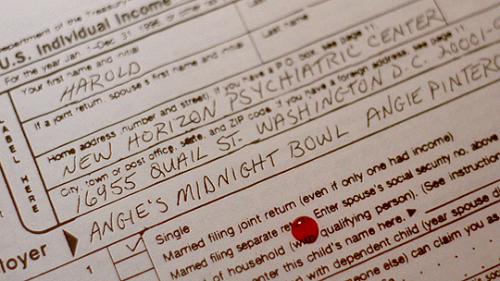 Department of the Treasury
U.S. Individual Income
For the year Jan. 1-Dec. 31, 1996, or other tax
Your first name and initial
Last name
HAROLD
If a joint return, spouse's first name and initial
Last name
Home address (number and street). If you have a P.O. box, see page
NEW HORIZON PSYCHIATRIC CENTER
City, town or post office, state, and ZIP code. If you have a foreign address, see page
16955 QUAIL ST. WASHINGTON D.C. 20001-
ANGIE'S MIDNIGHT BOWL ANGIE PINTERO
LABEL HERE
loyer
1
Single
Married filing joint return (even if only one had income)
Married filing separate Enter spouse's social security no. above
of household qualifying person). (See instruction
enter this child's name here.
with dependent child (year spouse
else) can claim you as